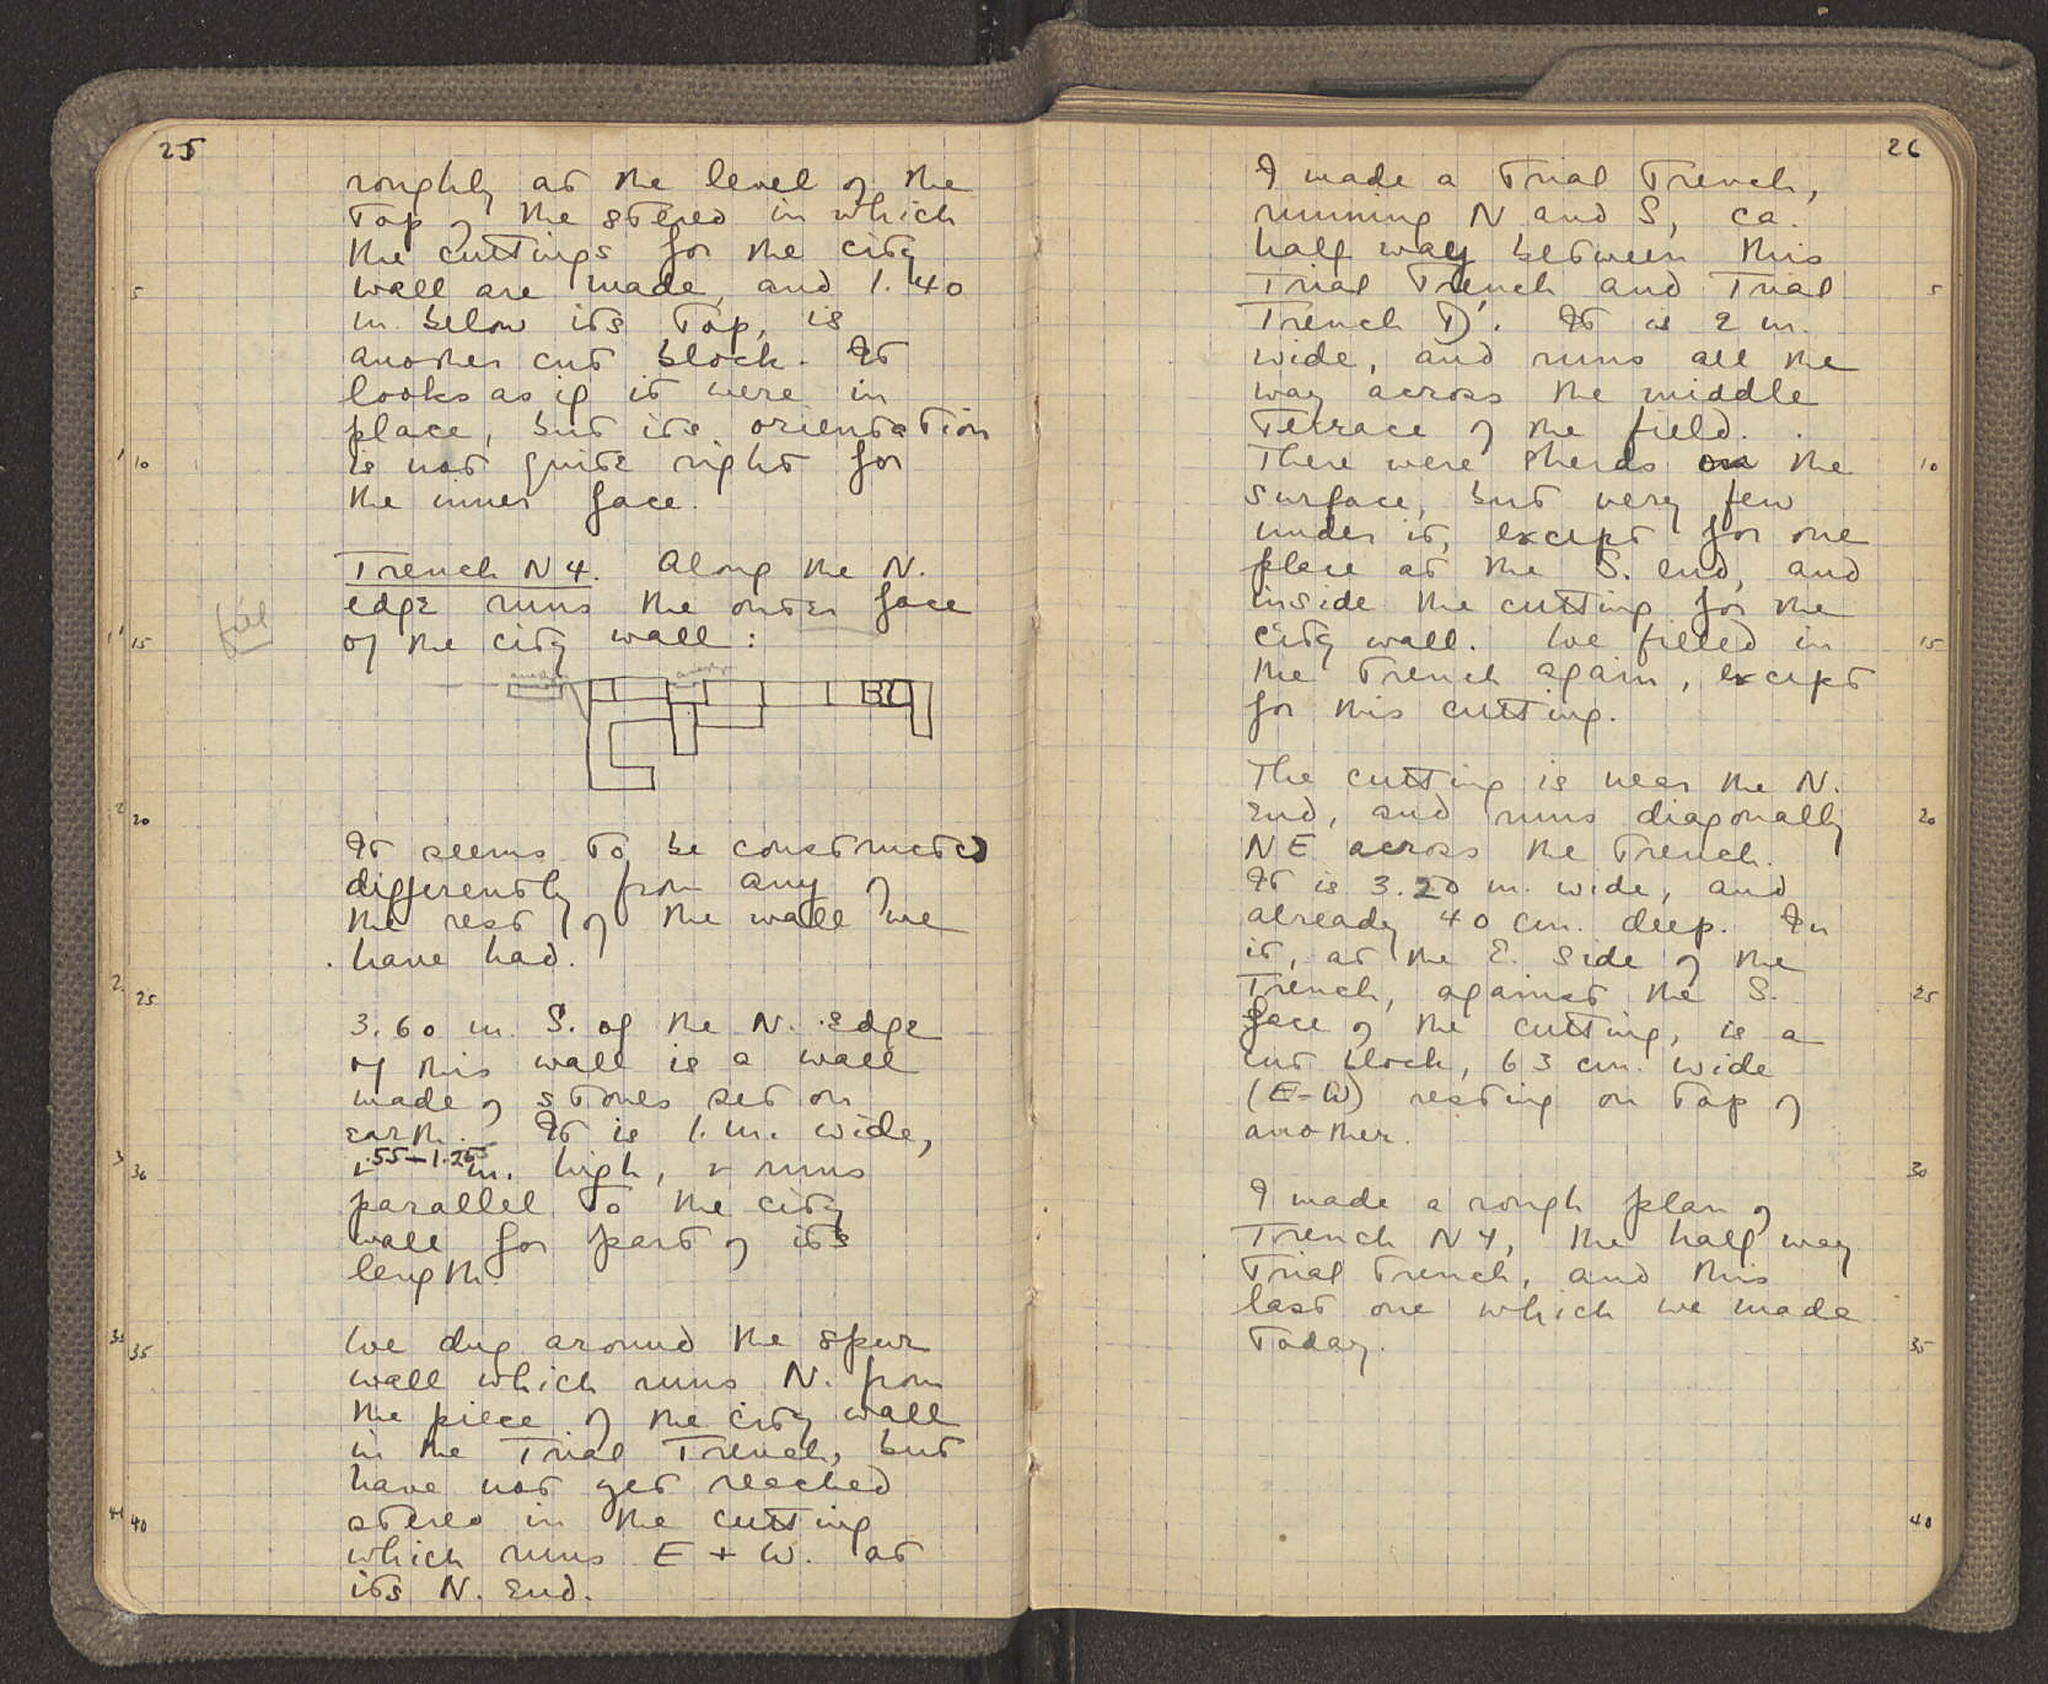 25
roughly at the level of the
top of the stereo in which
the cuttings for the city
wall are made, and 1.40
5
m. below its top, is
another cut block. It
looks as if it were in
place, but its orientation
is not quite right for
10
the inner face.
Trench N4. Along the N.
edge runs the outer face
fill
of the city wall:
15
20
It seems to be constructed
differently from any of
the rest of the wall we
have had.
25
3.60 m. S. of the N. edge
of this wall is a wall
made of stones set on
earth. It is 1. m. wide,
.55-1.255
+ m. high, + runs
30
parallel to the city
wall for part of its
length.
We dug around the spur
35
wall which runs N. from
the piece of the city wall
in the Trial Trench, but
have not yet reached
stereo in the cutting
40
which runs E + W. at
its N. end.
26
I made a Trial Trench,
running N and S, ca.
half way between this
Trial Trench and Trial
5
Trench D'. It is 2 m.
wide, and runs all the
way across the middle
Terrace of the field.
There were sherds on the
10
surface, but very few
under it, except for one
place at the S. end, and
inside the cutting for the
city wall. We filled in
15
the trench again, except
for this cutting.
The cutting is near the N.
end, and runs diagonally
20
NE across the trench.
It is 3.20 m. wide, and
already 40 cm. deep. In
it, at the E. side of the
Trench, against the S.
25
face of the cutting, is a
cut block, 63 cm. wide
(E-W) resting on top of
another.
30
I made a rough plan of
Trench N4, the half way
Trial Trench, and this
last one which we made
Today.
35
40